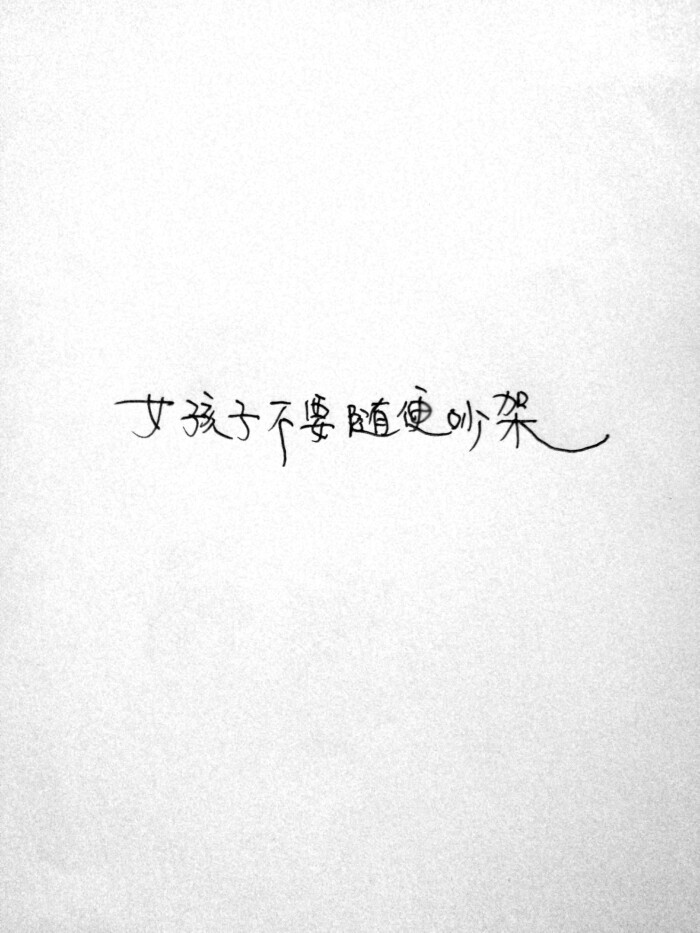 女孩子不要随便吵架